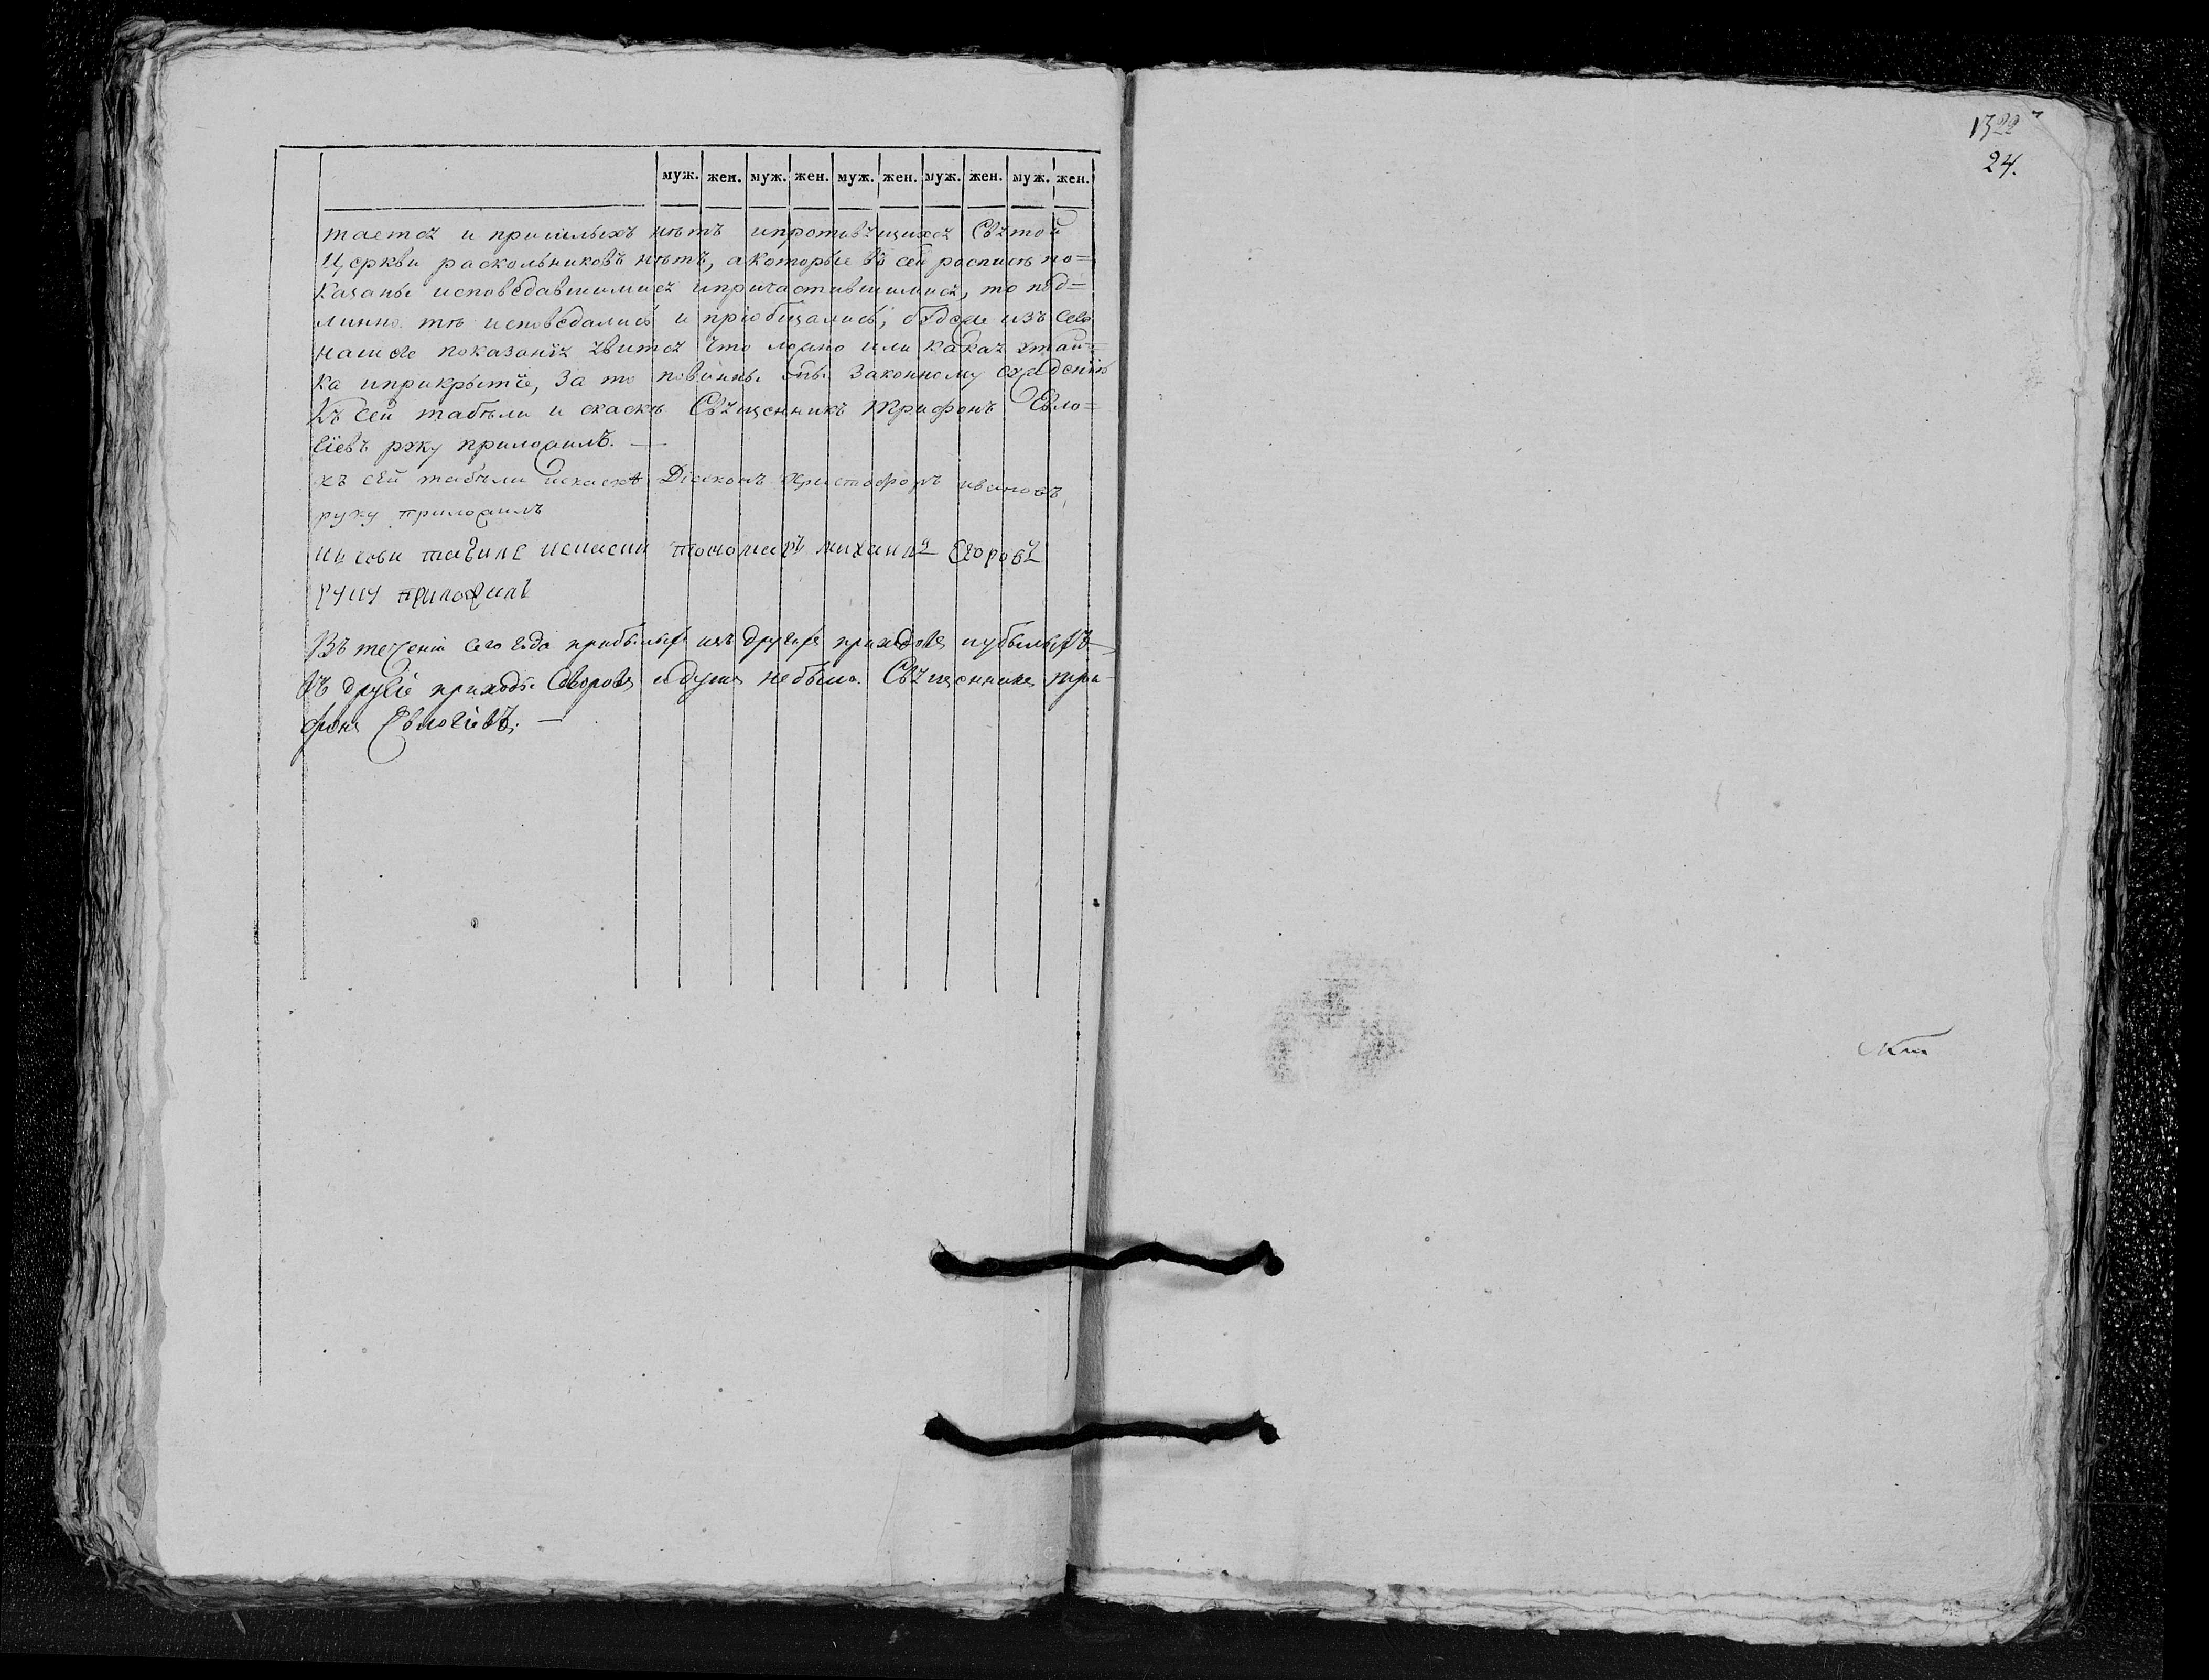 муж. жен. муж. жен. муж. жен. муж. жен. муж. жен.
таетсѧ и пришлыхъ нѣтъ ипротивѧщихсѧ Свѧтой
Церкви раскольниковъ нѣтъ, акоторые въ сей росписѣ по=
казаны исповѣдавшимисѧ ипричастившимисѧ, то под=
линно тѣ исповѣдались и пріобщались; бꙋдеже изъ сего
нашего показаніѧ ѧвитсѧ что ложно или какаѧ ꙋтай=
ка иприкрытіе, За то повинны Законному сꙋжденію
Къ сей табѣли и скаскѣ Свѧщенникъ Трифонъ Евло=
гіевъ рꙋку приложилъ. —
къ сей табѣли искаскѣ Діаконъ Христофоръ ивановъ
руку приложилъ
табиле искаски пономаръ михаилъ Егоровъ
руку приложилъ
Въ теченіи сего года прибылыхъ изъ другихъ приходовъ иубылыхъ
въ другіе приходы дворовъ идушъ небыло. Свѧщенникъ Три=
фонъ Евлогіевъ. —
1322
24.